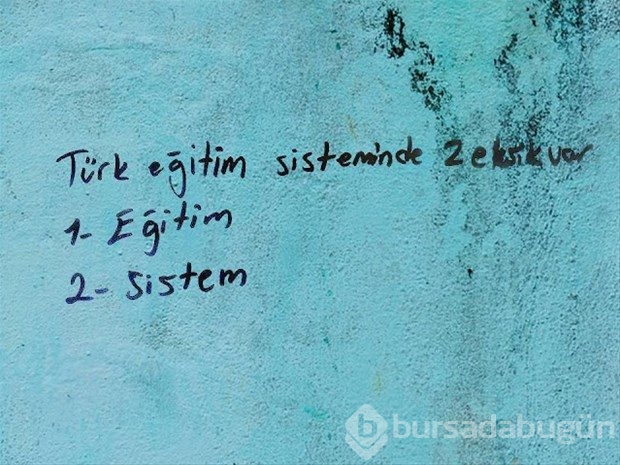 Türk eğitim sisteminde 2 eksik var
1- Eğitim
2- Sistem
bursadabugün